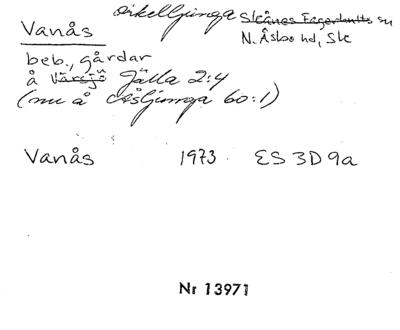 Vanås Örkelljunga ~~Skånes Fagerhults~~ sn
N. Åsbo hd, Sk
beb., gårdar
å ~~Värsjö~~ Jälla 2:4
(nu å Åsljunga 60:1)
Vanås 1973 ES 3D 9a
Nr 13971